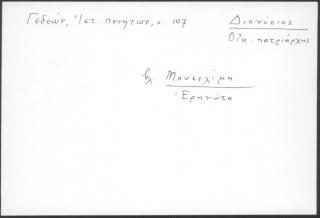 Γεδεών, Ἱστ. πενήτων, σ. 107
Διονύσιος
Οἰκ. πατριάρχης
βλ. Μαυσολίμη
Ἐρηνῶτα